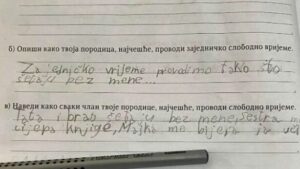 б) Опиши како твоја породица, најчешће, проводи заједничко слободно вријеме.
Zajedničko vrijeme provodimo tako što
šetaju bez mene...
в) Наведи како сваки члан твоје породице, најчешће, проводи слободно вријеме.
Tata i brat šetaju bez mene, sestra
knjige, Majka me bije